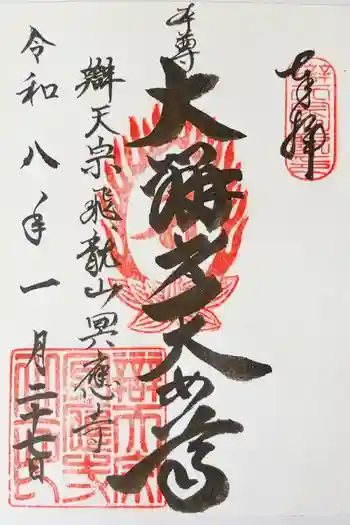 奉拝
本尊
大辯才天女尊
辯天宗飛龍山冥應寺
令和八年一月二十七日